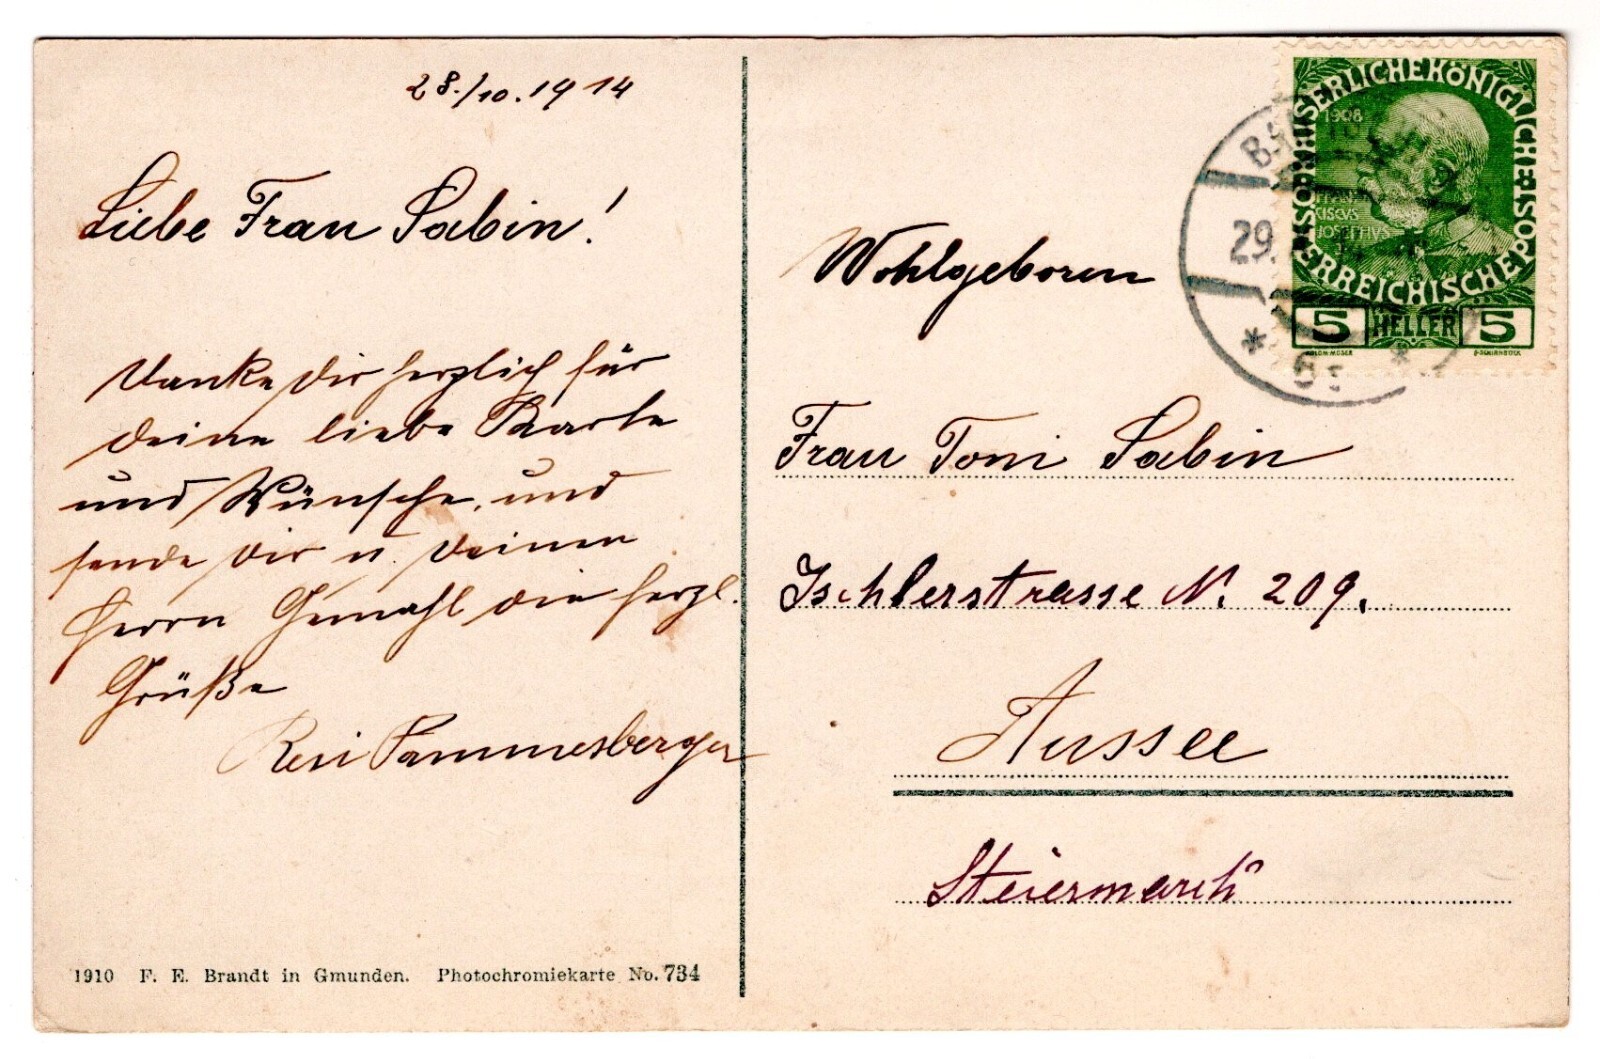 28./10. 1914
Liebe Frau Sabin!
Danke dir herzlich für
deine liebe Karte
und Wünsche, und
sende dir u. deinen
Herrn Gemahl die herzl.
Grüße
Resi Pammesberger
1910 F. E. Brandt in Gmunden. Photochromiekarte No. 734
KAISERLICHE KÖNIGLICHE ÖSTERREICHISCHE POST
1908
FRAN
CISCVS
JOSEPHVS
5 HELLER 5
29
Wohlgeboren
Frau Toni Sabin
Ischlerstrasse N. 209.
Aussee
Steiermark